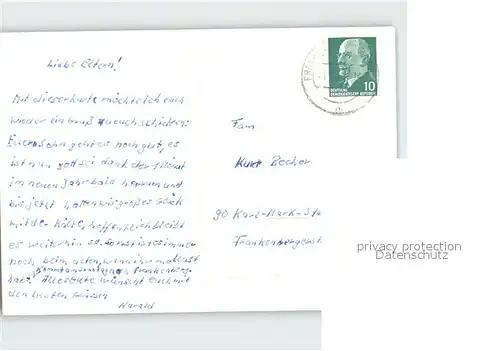 Liebe Eltern!
Mit dieser Karte möchte ich euch
wieder ein Gruß zu euch schicken.
Eurem Sohn geht es noch gut, es
ist nun Gott sei dank der 1 Monat
im neuen Jahr bald herum und
bis jetzt hatten wir großes Glück
mit der Kälte, hoffentlich bleibt
es weiterhin so. Sonst ist es immer
noch beim alten, wenn ihr mal Lust
habt, kommt Frankenberg
Alles Gute wünscht Euch mit
den besten Grüßen
Harald
DEUTSCHE
DEMOKRATISCHE REPUBLIK
10
Fam
Kurt Becher
90 Karl-Marx-Sta
Frankenbergerst
privacy protection
Datenschutz